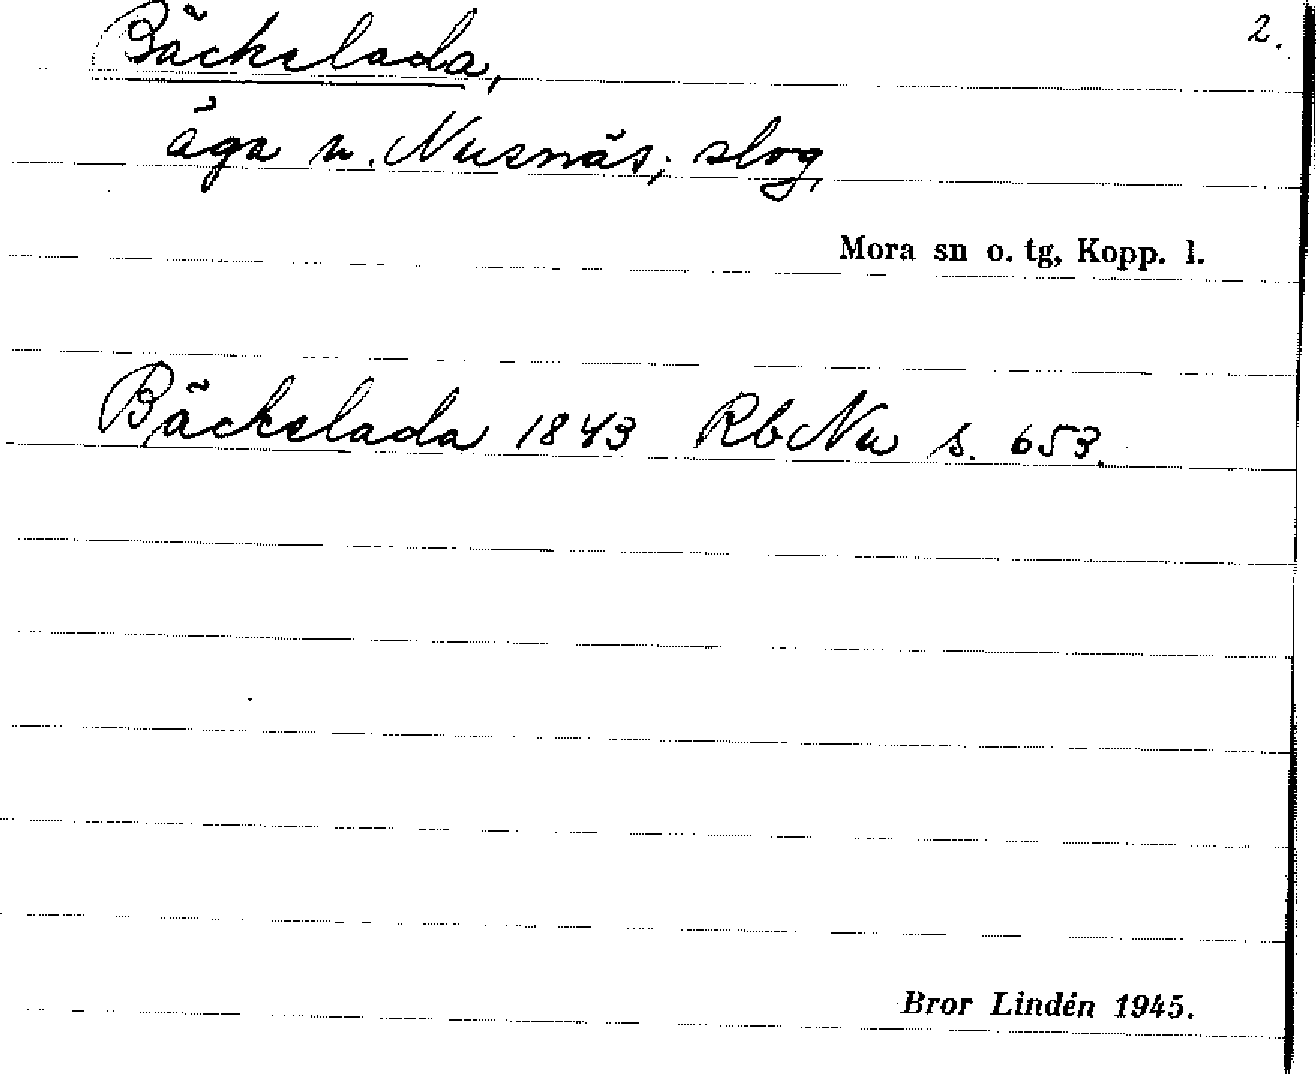 2.
Bäckslada,
äga u. Nusnäs; slog
Mora sn o. tg, Kopp. l.
Bäckslada 1843 RbNu s. 653.
Bror Lindén 1945.